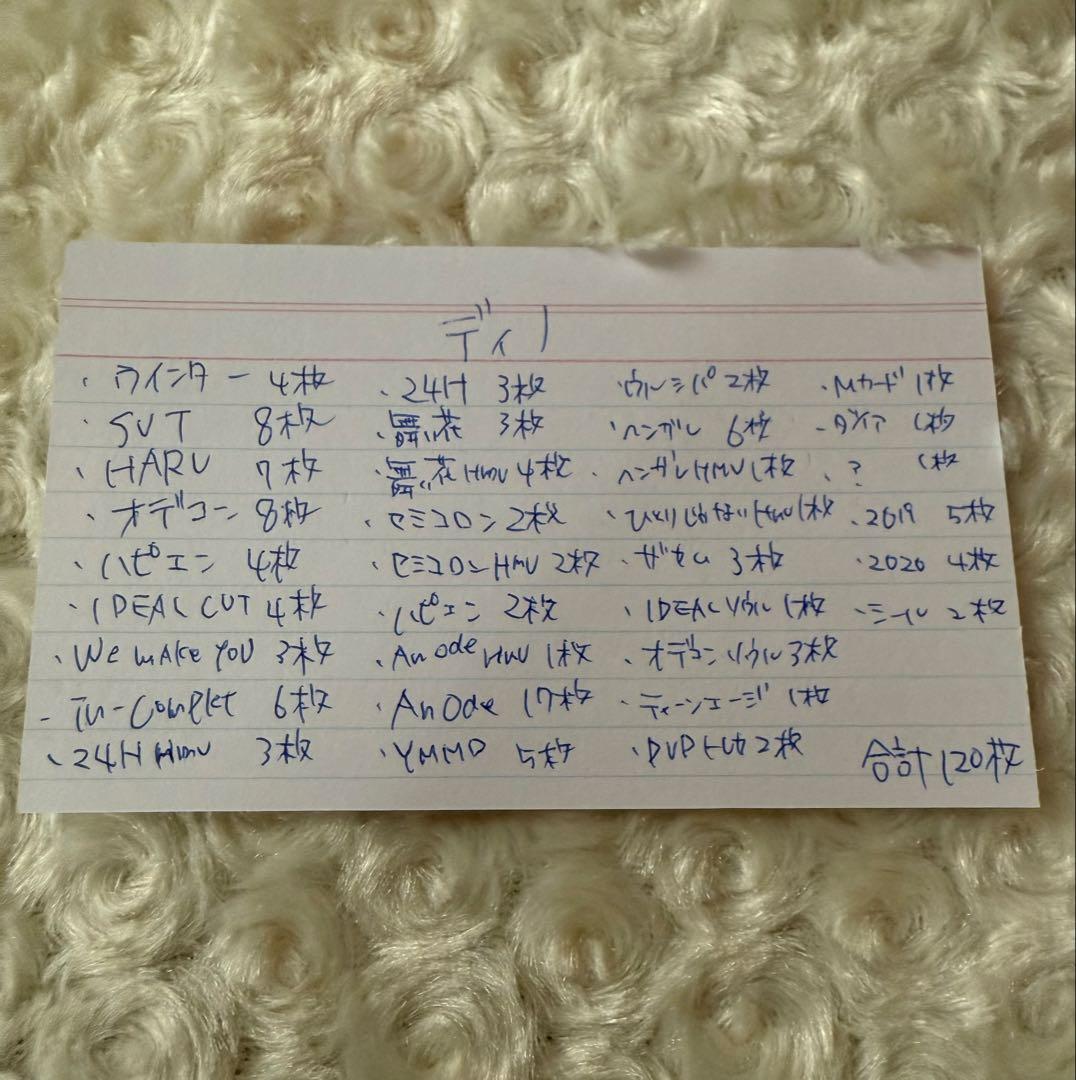 ディノ
・ウインター 4枚
・SVT 8枚
・HARU 7枚
・オデコン 8枚
・ハピエン 4枚
・IDEAL CUT 4枚
・We MAKE YOU 3枚
- In-Complet 6枚
・24H HMV 3枚
・24H 3枚
・舞い花 3枚
・舞い花 HMV 4枚
・セミコロン 2枚
・セミコロン HMV 2枚
・ハピエン 2枚
・An ode HMV 1枚
・An Ode 17枚
・YMMD 5枚
・ウルシパ 2枚
・ヘンガレ 6枚
・ヘンガレ HMV 1枚
・ひとりじゃない HMV 1枚
・ザセム 3枚
・IDEAL ソウル 1枚
・オデコン ソウル 3枚
・ティーンエージ 1枚
・DVD トレカ 2枚
・Mカード 1枚
- ダイア 1枚
・? 1枚
・2019 5枚
・2020 4枚
・シール 2枚
合計 120枚